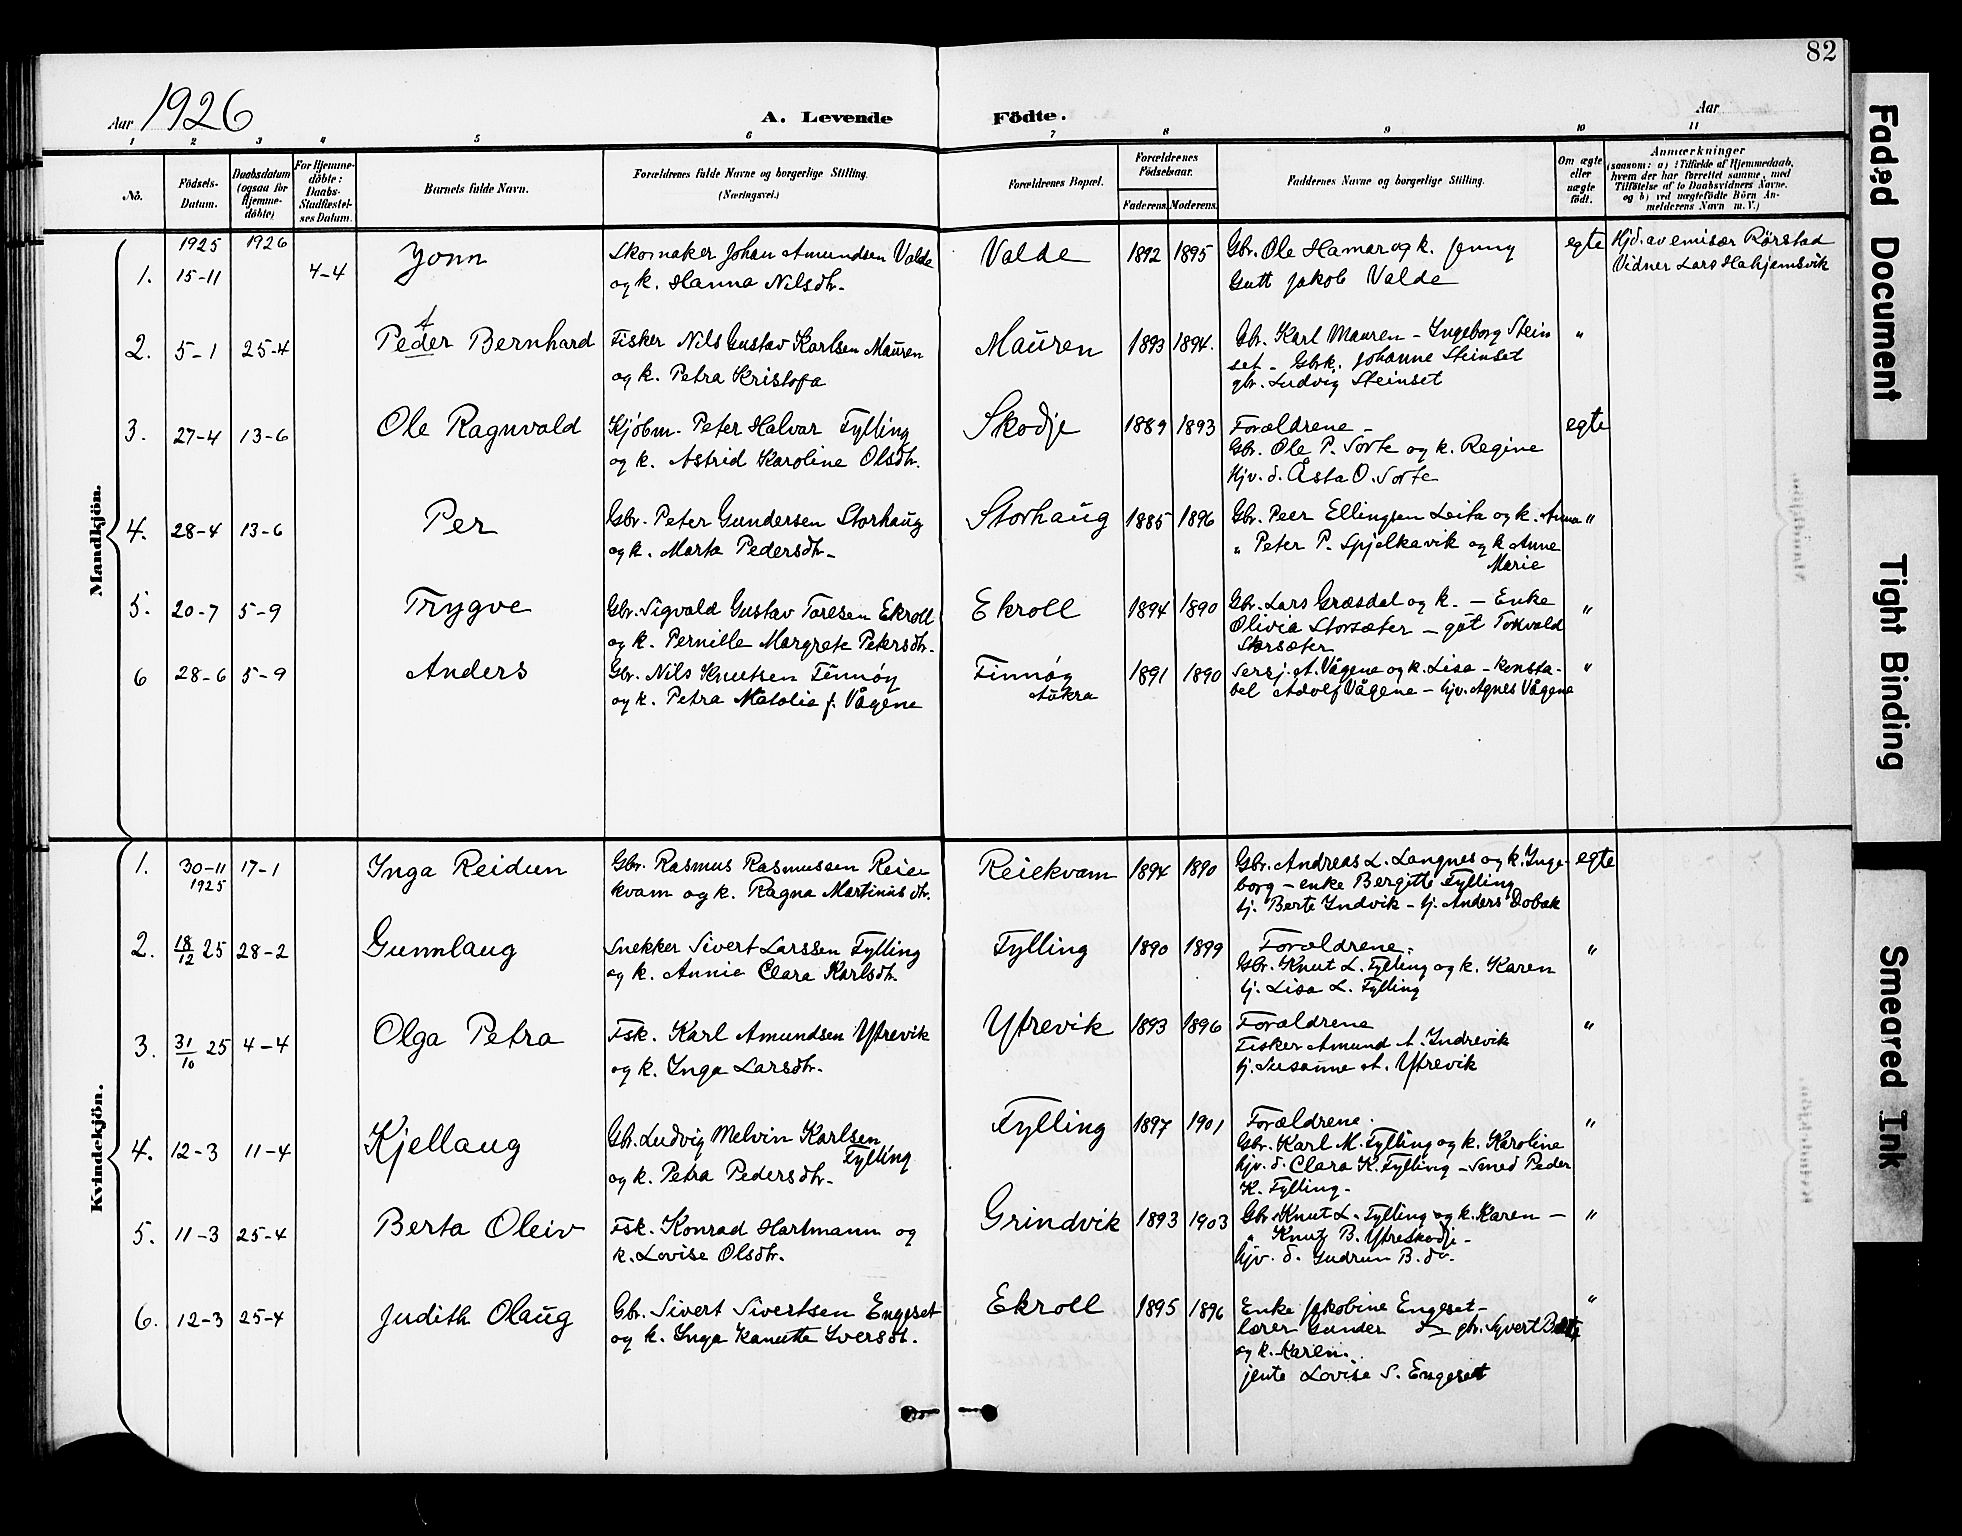 82
Aar 1926
A. Levende Födte.
Aar
1 2 3 4 5 6 7 8 9 10 11
Nö.
Födsels-Datum.
Daabsdatum (ogsaa for Hjemme-döbte)
For Hjemme-döbte: Daabs-Stadfæstel-ses Datum.
Barnets fulde Navn.
Forældrenes fulde Navne og borgerlige Stilling. (Næringsvei.)
Forældrenes Bopæl.
Forældrenes Födselsaar.
Faderens. Moderens.
Faddernes Navne og borgerlige Stilling.
Om ægte eller uægte födt.
Anmærkninger
(saasom: a) i Tilfælde af Hjemmedaab, hvem der har forrettet samme, med Tilföielse af to Daabsvidners Navne, og b) ved uægtefödte Börn An-melderens Navn m. V.)
Mandkjön.
1925 1926
1. 15-11 4-4 Jonn
Skomaker Johan Amundsen Valde
og k. Hanna Nilsdtr.
Valde 1892 1895
Gbr. Ole Hamar og k. Jenny
Gutt Jakob Valde
egte
Hjd. av emisær Rörstad
Vidner Lars Hahjemsvik
2. 5-1 25-4 Peder Bernhard
Fisker Nils Gustav Karlsen Mauren
og k. Petra Kristofa
Mauren 1893 1894.
Gbr. Karl Mauren - Ingeborg Stein
set - Gbrk. Johanne Steinset
gbr. Ludvig Steinset
"
3. 27-4 13-6 Ole Ragnvald
Kjöbm. Peter Halvar Fylling
og k. Astrid Karoline Olsdtr.
Skodje 1889 1893
Forældrene -
Gbr. Ole P. Sorte og k. Regine
hjv. d. Åsta O. Sorte
egte
4. 28-4 13-6 Per
Gbr. Peter Gundersen Storhaug
og k. Marta Pedersdtr.
Storhaug 1885 1896
Gbr. Peer Ellingsen Leita og k. Anna
" Peter P. Spjelkavik og k Anne
Marie
"
5. 20-7 5-9 Trygve
Gbr. Sigvald Gustav Toresen Ekroll
og k. Pernille Margrete Petersdtr.
Ekroll 1894 1890
Gbr. Lars Græsdal og k. - Enke
Olivia Storsæter - gut Torvald
Storsæter
"
6 28-6 5-9 Anders
Gbr. Nils Knutsen Finnöy
og k. Petra Natalia f. Vågene
Finnöy
Aukra
1891 1890
Sersj. A. Vågene og k. Lisa - konsta-
bel Adolf Vågene - hjv. Agnes Vågene
"
Kvindekjön.
1. 30-11 1925 17-1 Inga Reidun
Gbr. Rasmus Rasmussen Reie
kvam og k. Ragna Martinusdtr.
Reiekvam 1894 1890
Gbr. Andreas L. Langnes og k. Inge-
borg - enke Bergitte Fylling
tj. Berte Indvik - tj. Anders Dobak
egte
2. 18/12 25 28-2 Gunnlaug
Snekker Sivert Larssen Fylling
og k. Annie Clara Karlsdtr.
Fylling 1890 1899
Forældrene.
Gbr. Knut L. Fylling og k. Karen
tj. Lisa L. Fylling
"
3. 31/10 25 4-4 Olga Petra
Fsk. Karl Amundsen Ytrevik
og k. Inga Larsdtr.
Ytrevik 1893 1896
Forældrene
Fisker Amund A. Indrevik
tj. Susanne A. Ytrevik
"
4. 12-3 11-4 Kjellaug
Gb. Ludvig Melvin Karlsen
Fylling
og k. Petra Pedersdtr.
Fylling 1897 1901
Forældrene.
Gbr. Karl M. Fylling og k. Karoline
hjv. d. Clara K. Fylling - Smed Peder
K. Fylling.
"
5. 11-3 25-4 Berta Oleiv
Fsk. Konrad Hartmann og
k. Lovise Olsdtr.
Grindvik 1893 1903
Gbr. Knut L. Fylling og k. Karen -
" Knut B. Ytreskodje -
hjv. d. Gudrun B. do.
"
6. 12-3 25-4 Judith Olaug
Gbr. Sivert Sivertsen Engeset
og k. Inga Kanutte Iversdt.
Ekroll 1895 1896
Enke Jakobine Engeset -
lærer Gunder gbr. Syvert
og k. Karen.
jente Lovise S. Engeset
"
Faded Document
Tight Binding
Smeared Ink